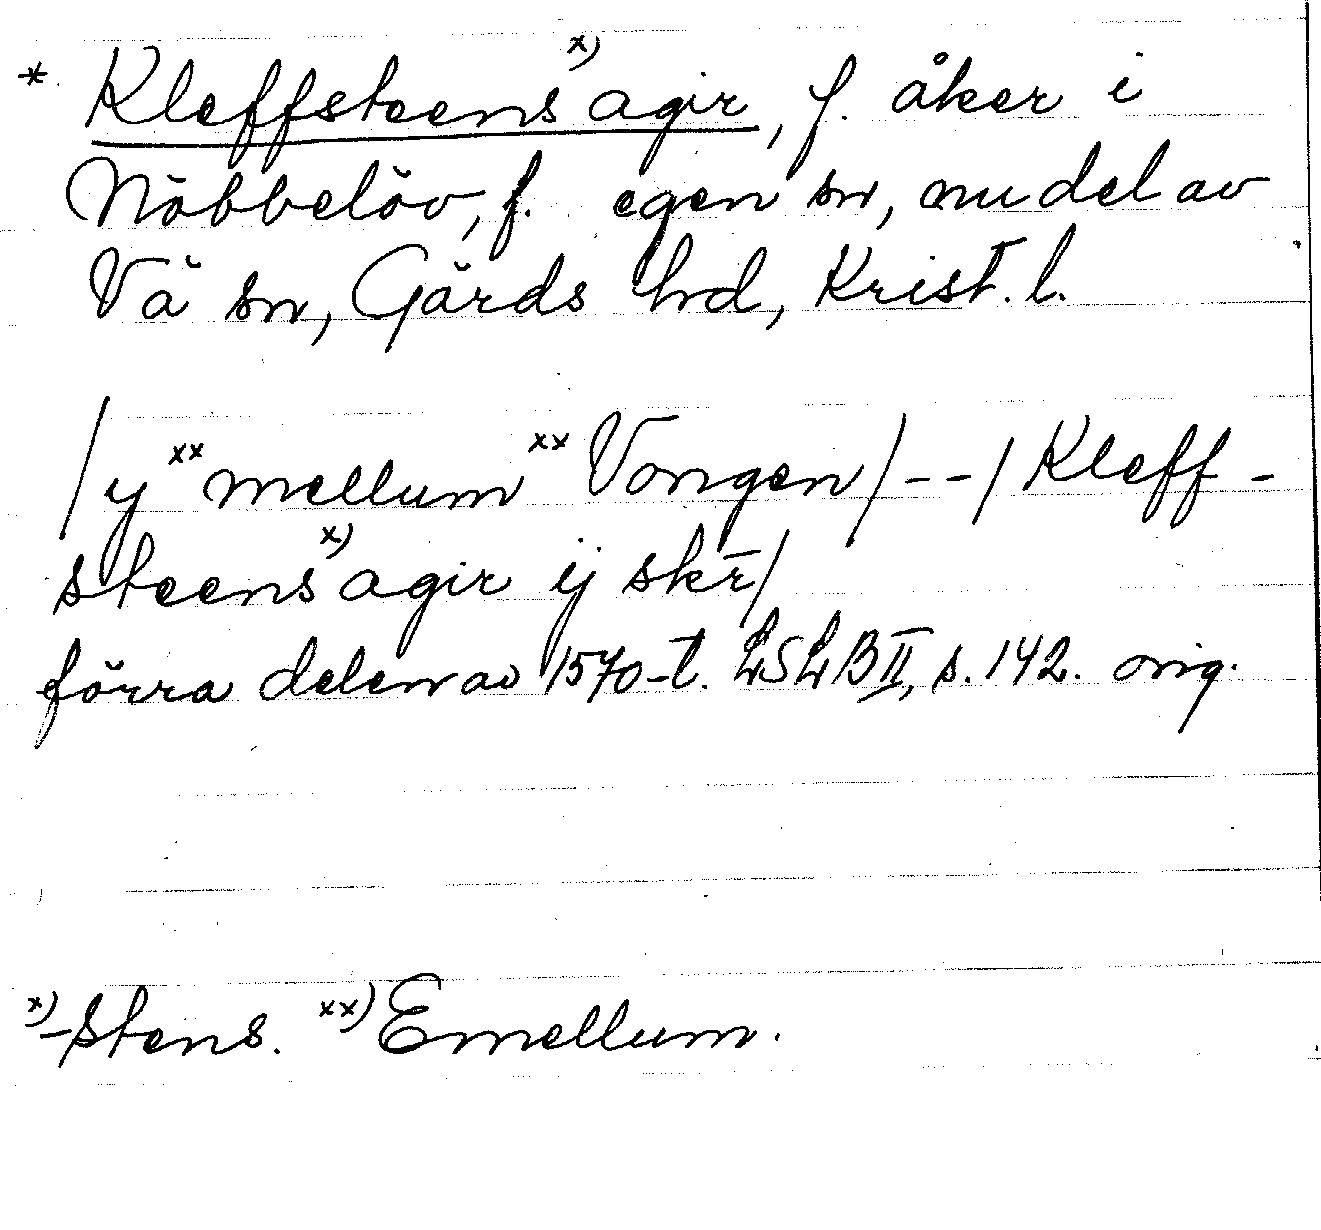 * Kleffsteens x) agir, f. åker i
Nöbbelöv, f. egen sn, nu del av
Vä sn, Gärds hd, Krist. l.
/y xx mellum xx Vongen/--/Kleff-
steens x) agir ij skr̄/
förra delen av 1570-t. LSLB II, s. 142. orig.
x) -stens. xx) Emellum.